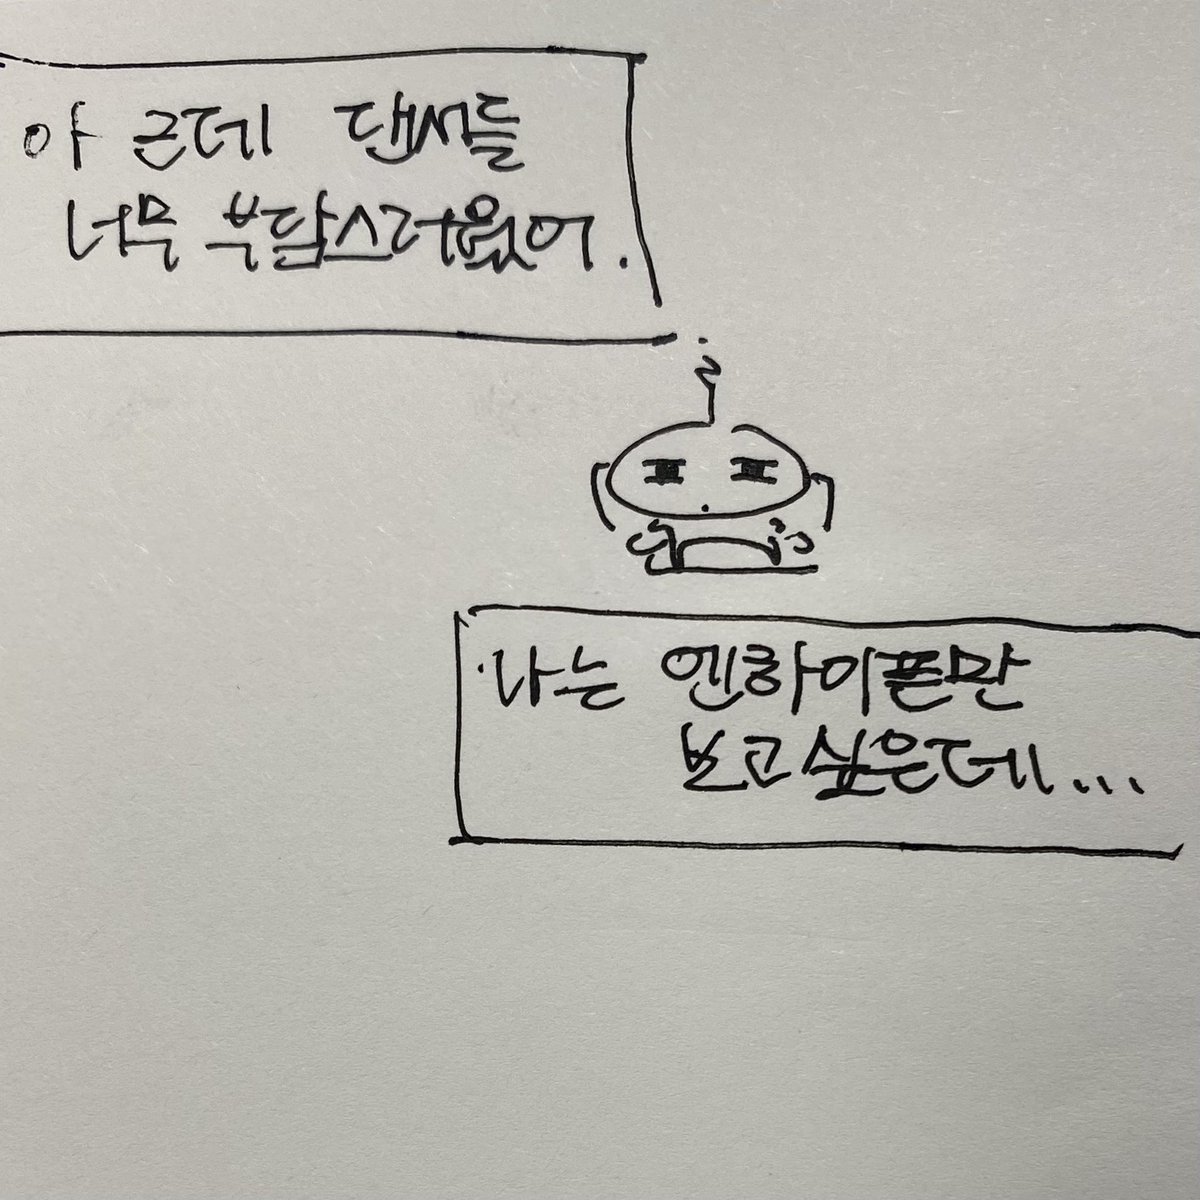 아 근데 댄서들
너무 부담스러웠어.
나는 엔하이픈만
보고싶은데...